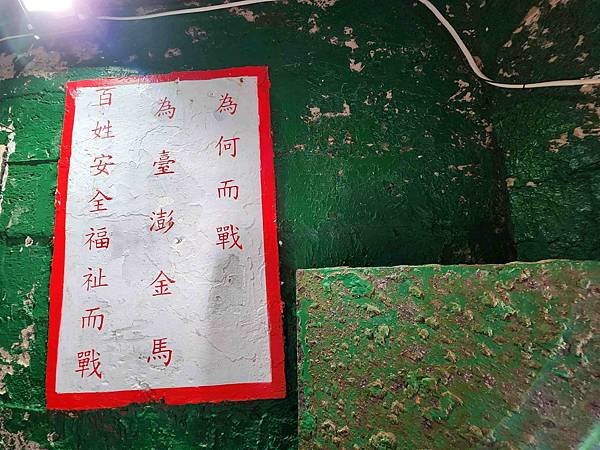 為何而戰
為臺澎金馬
百姓安全福祉而戰